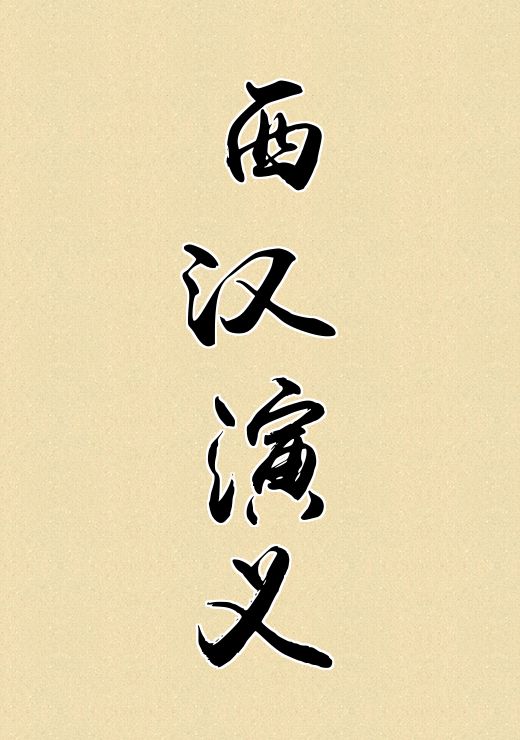 西汉演义